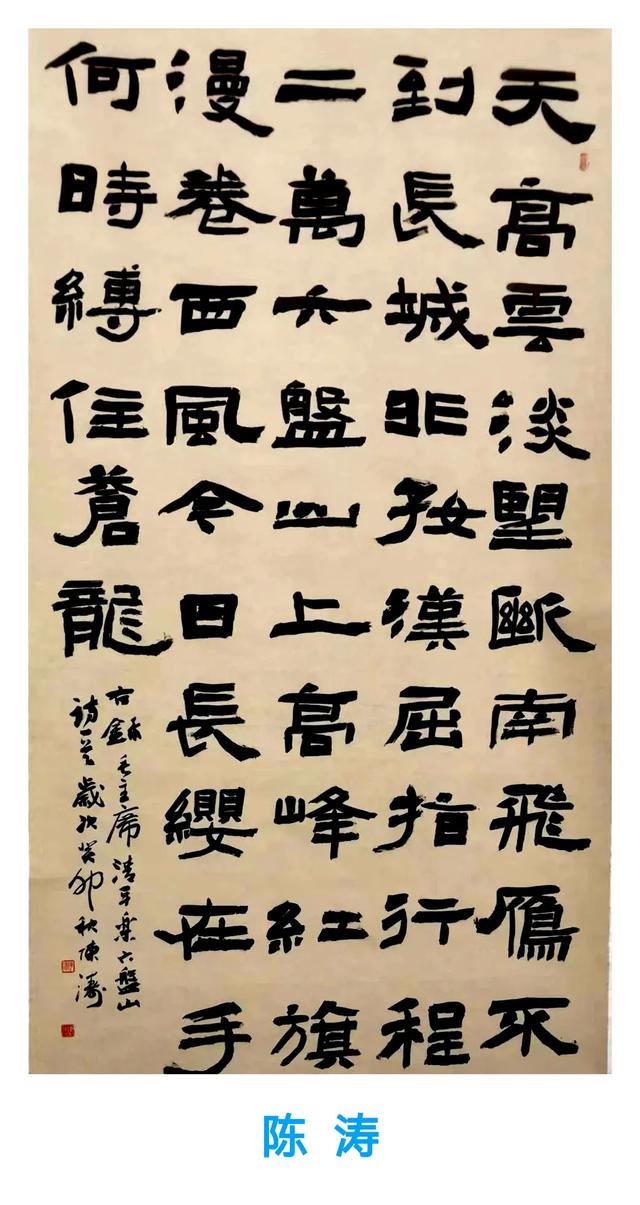 天高雲淡望斷南飛鴈不
到長城非好漢屈指行程
二萬六盤山上高峰紅旗
漫卷西風今日長纓在手
何時縛住蒼龍
右錄毛主席清平樂六盤山
詞一首歲次癸卯秋陳濤
陈 涛